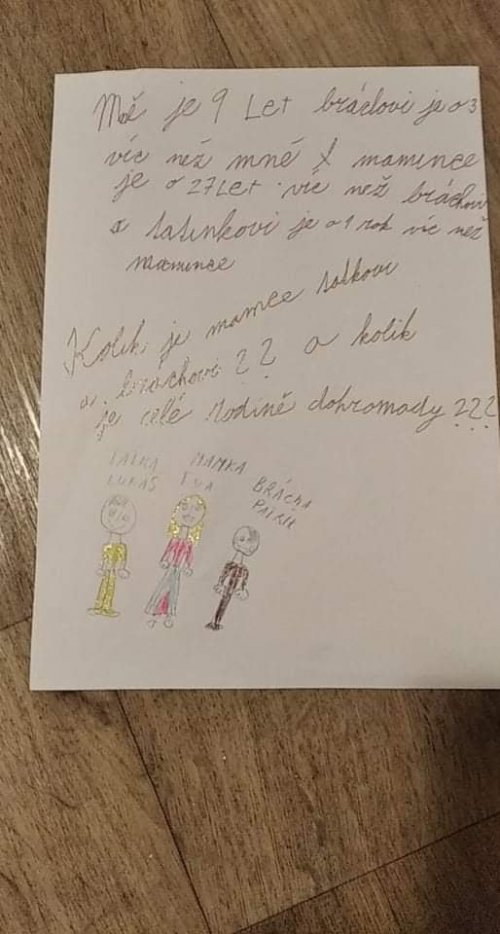 Mě je 9 Let bráchovi je o 3
víc než mně & mamince
je o 27 Let víc než bráchovi
a tatínkovi je o 1 rok víc než
mamince
Kolik je mamce taťkovi
a bráchovi ?? a kolik
je celé rodině dohromady ???
TAŤKA MAMKA
LUKÁŠ EVA BRÁCHA
PATRIK